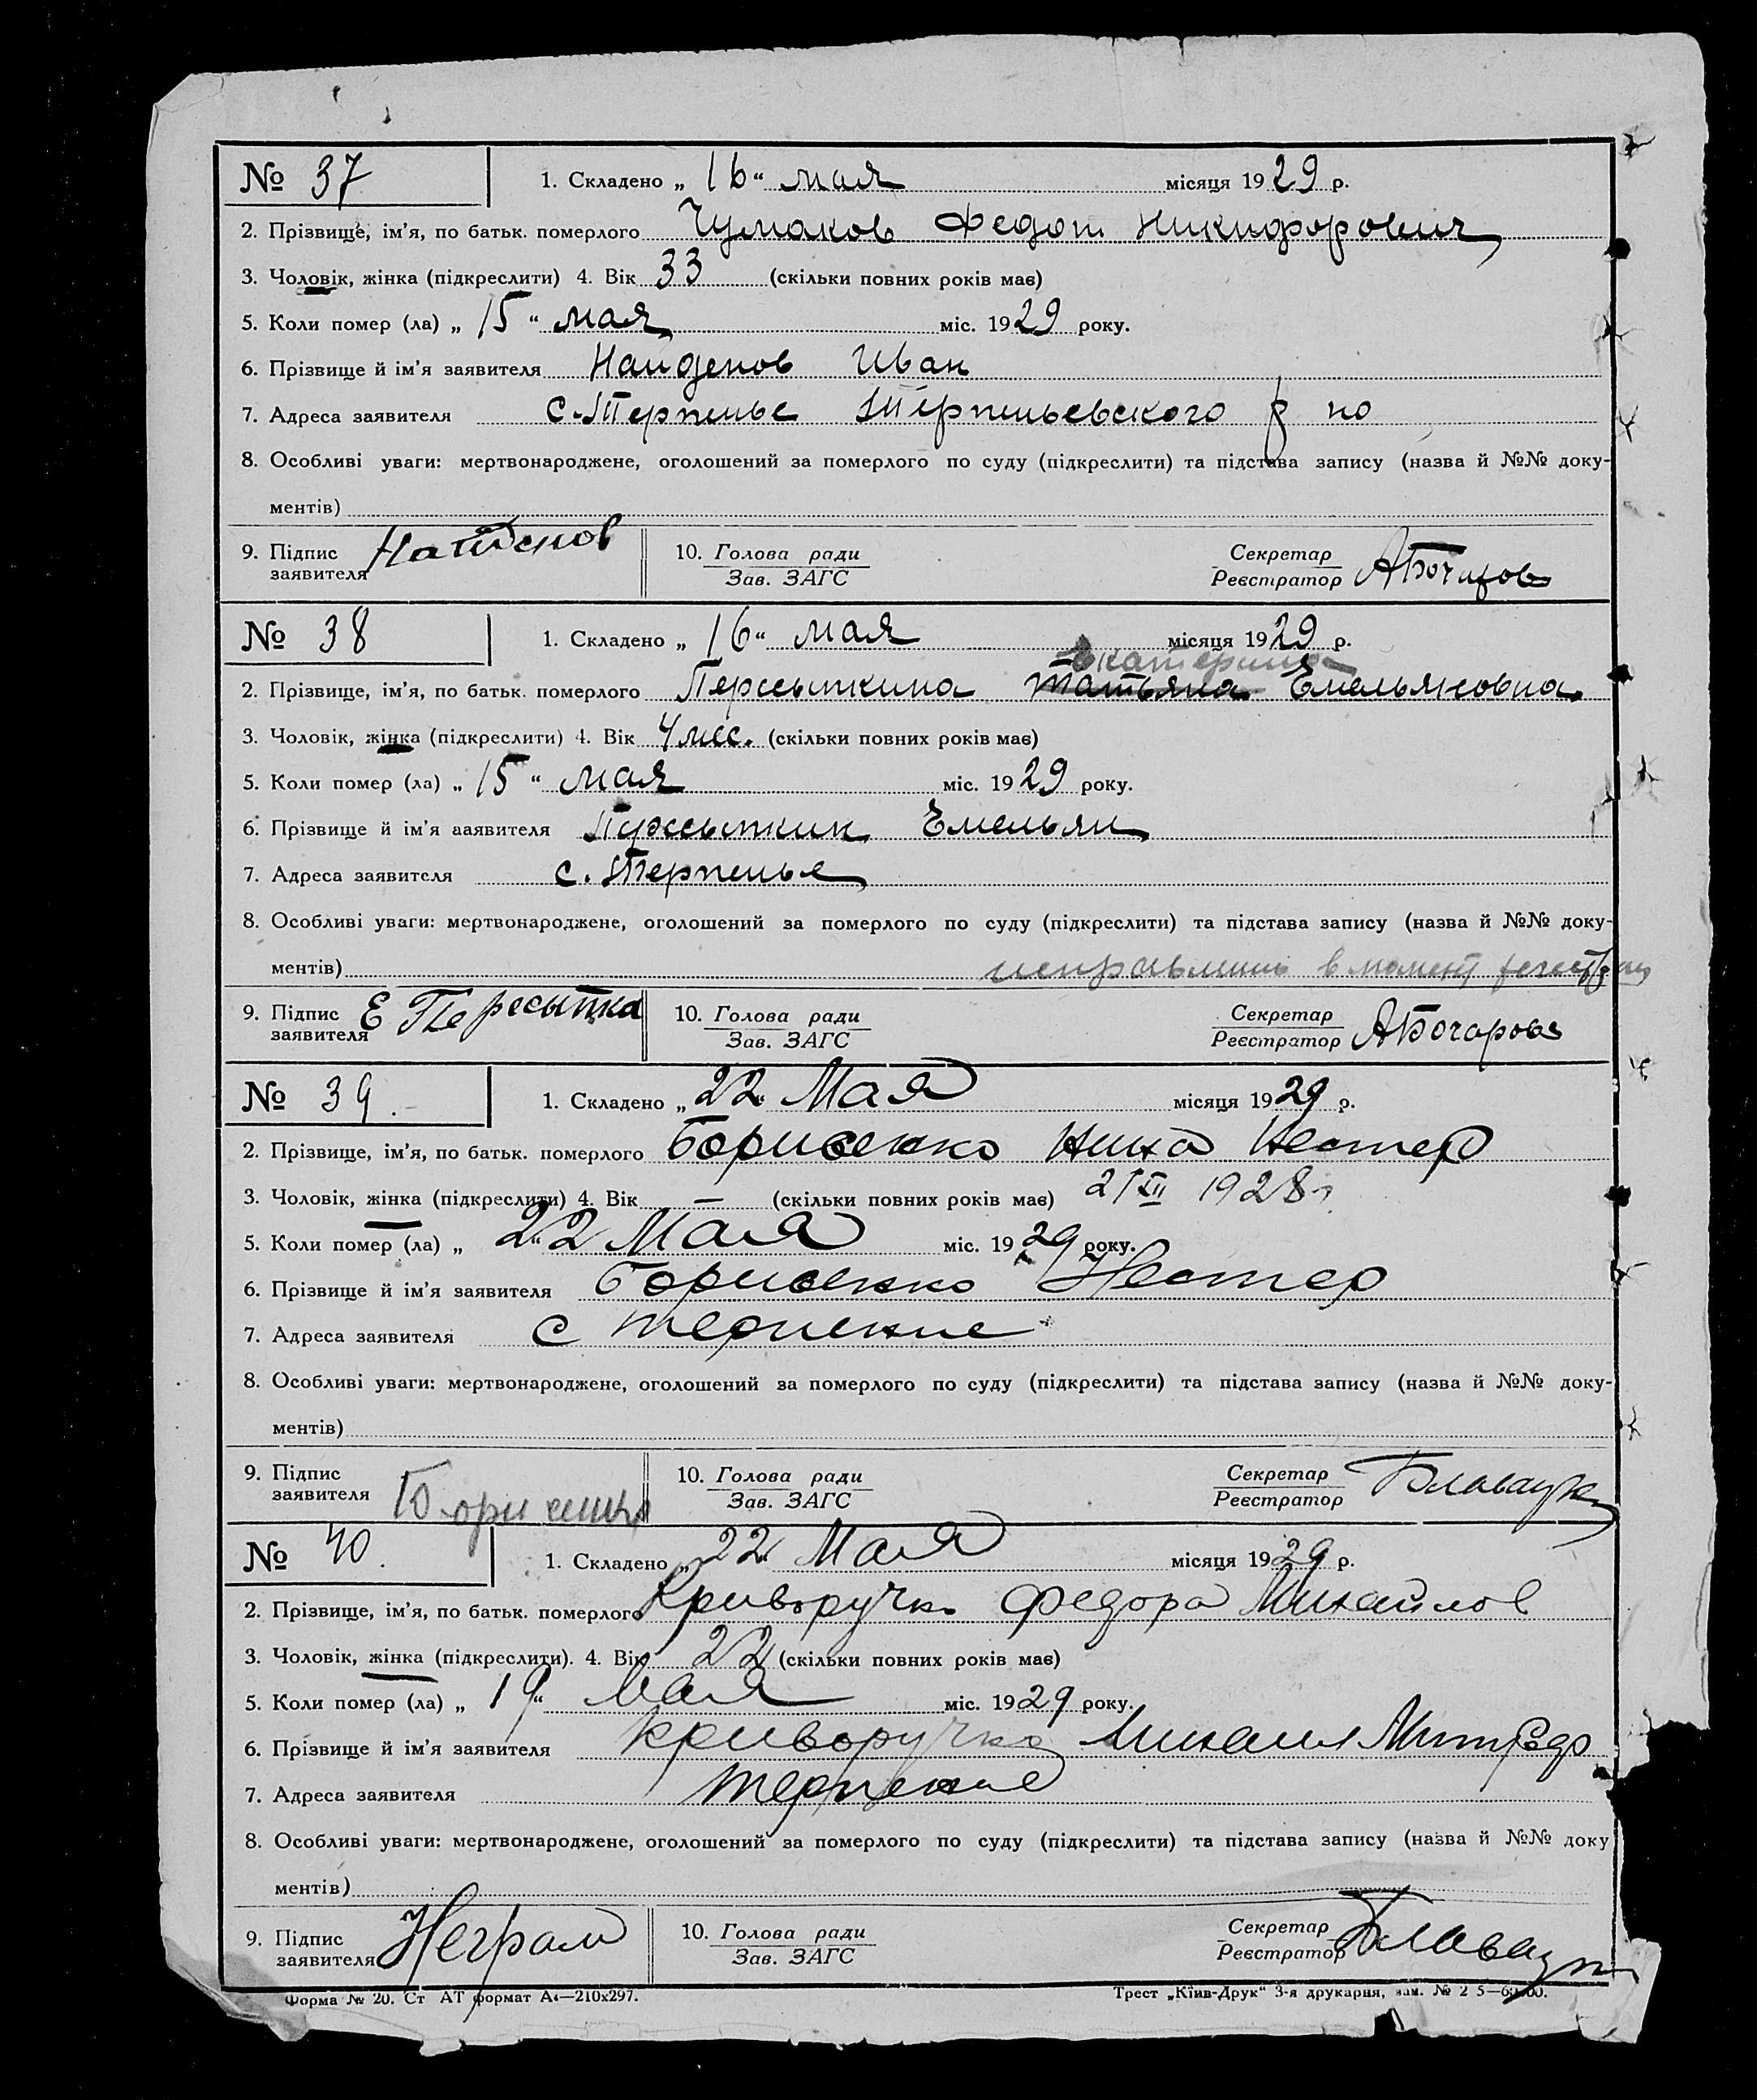 № 37 1. Складено „ 16 “ мая місяця 1929 р.
2. Прізвище, ім'я, по батьк. померлого Чумаков Федот Никифорович
3. Чоловік, жінка (підкреслити) 4. Вік 33 (скільки повних років має)
5. Коли помер (ла) „ 15 “ мая міс. 1929 року.
6. Прізвище й ім'я заявителя Найденов Иван
7. Адреса заявителя с. Терпенье Терпеньевского р но
8. Особливі уваги: мертвонароджене, оголошений за померлого по суду (підкреслити) та підстава запису (назва й №№ доку-
ментів)
9. Підпис заявителя Найденов 10. Голова ради Зав. ЗАГС Секретар Реєстратор АБочаров
№ 38 1. Складено „ 16 “ мая місяця 1929 р.
Екатерина
2. Прізвище, ім'я, по батьк. померлого Пересыпкина Татьяна Емельяновна
3. Чоловік, жінка (підкреслити) 4. Вік 4 мес. (скільки повних років має)
5. Коли помер (ла) „ 15 “ мая міс. 1929 року.
6. Прізвище й ім'я заявителя Пересыпкин Емельян
7. Адреса заявителя с. Терпенье
8. Особливі уваги: мертвонароджене, оголошений за померлого по суду (підкреслити) та підстава запису (назва й №№ доку-
ментів) в момент
9. Підпис заявителя Е Пересыпка 10. Голова ради Зав. ЗАГС Секретар Реєстратор АБочаров
№ 39. 1. Складено „ 22 “ Мая місяця 1929 р.
2. Прізвище, ім'я, по батьк. померлого Борисенко Нина Нестер
3. Чоловік, жінка (підкреслити) 4. Вік — (скільки повних років має) 21 XII 1928 г
5. Коли помер (ла) „ 22 Мая міс. 1929 року.
6. Прізвище й ім'я заявителя Борисенко Нестер
7. Адреса заявителя с Терпение
8. Особливі уваги: мертвонароджене, оголошений за померлого по суду (підкреслити) та підстава запису (назва й №№ доку-
ментів)
9. Підпис заявителя 10. Голова ради Зав. ЗАГС Секретар Реєстратор
№ 40. 1. Складено „ 22 “ Мая місяця 1929 р.
2. Прізвище, ім'я, по батьк. померлого Криворучко Федора Михайлов
3. Чоловік, жінка (підкреслити). 4. Вік 22 (скільки повних років має)
5. Коли помер (ла) „ 19 “ мая міс. 1929 року.
6. Прізвище й ім'я заявителя Криворучко Михаил
7. Адреса заявителя Терпение
8. Особливі уваги: мертвонароджене, оголошений за померлого по суду (підкреслити) та підстава запису (назва й №№ доку
ментів)
9. Підпис заявителя Неграм 10. Голова ради Зав. ЗАГС Секретар Реєстратор
Форма № 20. Ст АТ формат А4—210х297. Трест „Київ-Друк“ 3-я друкарня, зам. №